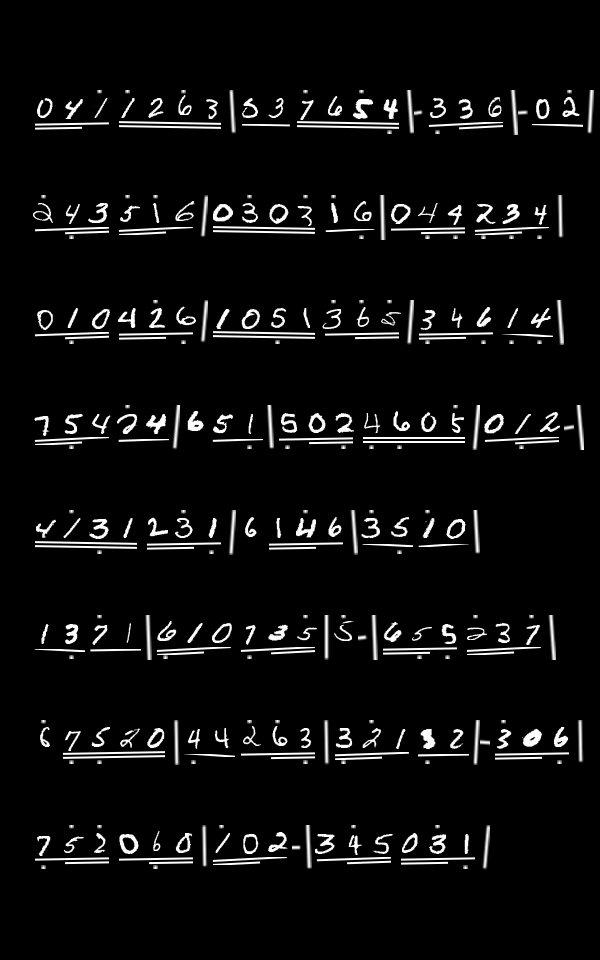 0411263|533765 4|-336|-02|
243516|030316|044234|
010426|1051365|34614|
75424|651|5024605|012-|
4131231|6146|3510|
1371|610735|5-|655237|
67520|44263|32132|-306|
752060|102-|345031|